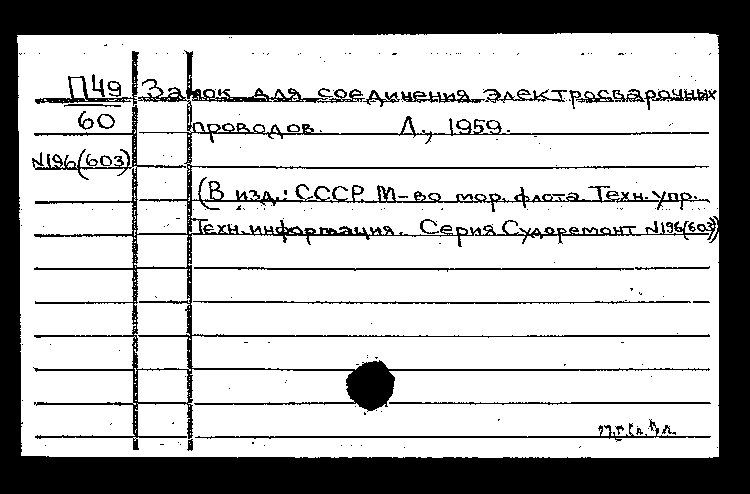 П49 Замок для соединения электросварочных
60 проводов. Л., 1959.
N196(603)
(В изд.: СССР. М-во мор. флота. Техн. упр.
Техн. информация. Серия Судоремонт N196(603))